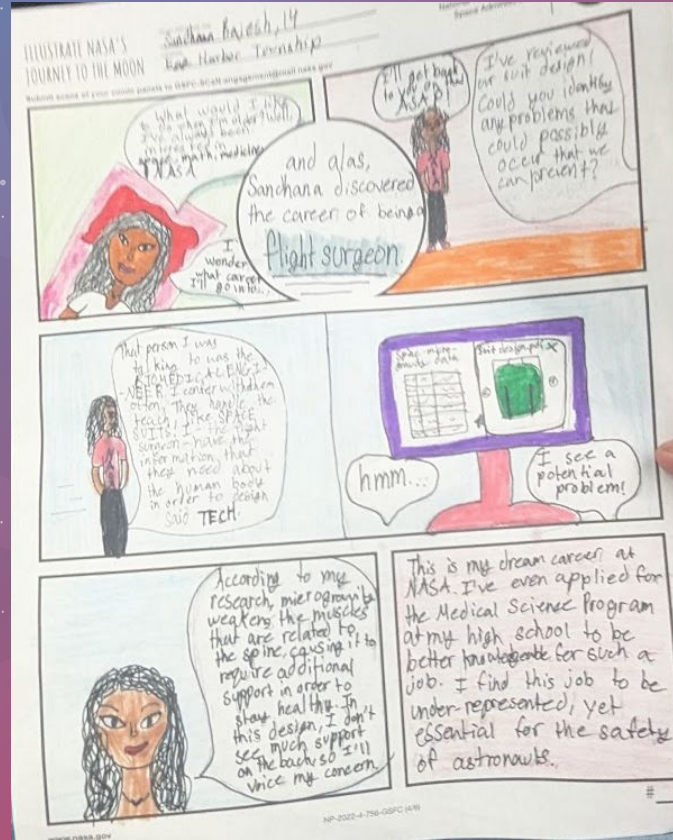 Sandhana Rajesh, 14
Egg Harbor Township
ILLUSTRATE NASA'S
JOURNEY TO THE MOON
What would I like
to do when I'm older? Well,
I've always been
interested in
space, math, medicine,
NASA
I
wonder
what career
I'll go into...
and alas,
Sandhana discovered
the career of being a
flight surgeon.
I'll get back
to you on that
ASAP!
I've reviewed
our suit design!
Could you identify
any problems that
could possibly
occur that we
can prevent?
That person I was
talking to was the
BIOMEDICAL ENGI-
NEER. I confer with them
often. They handle the
teach, like SPACE
SUITS. I - the flight
surgeon - have the
information that
they need about
the human body
in order to design
said TECH.
data
Suit design.pdf X
hmm...
I see a
potential
problem!
According to my
research, microgravity
weakens the muscles
that are related to
the spine, causing it to
require additional
support in order to
stay healthy. In
this design, I don't
see much support
on the back, so I'll
voice my concern.
This is my dream career at
NASA. I've even applied for
the Medical Science Program
at my high school to be
better knowledgeable for such a
job. I find this job to be
under-represented, yet
essential for the safety
of astronauts.
#
NP-2022-4-756-GSFC
www.nasa.gov